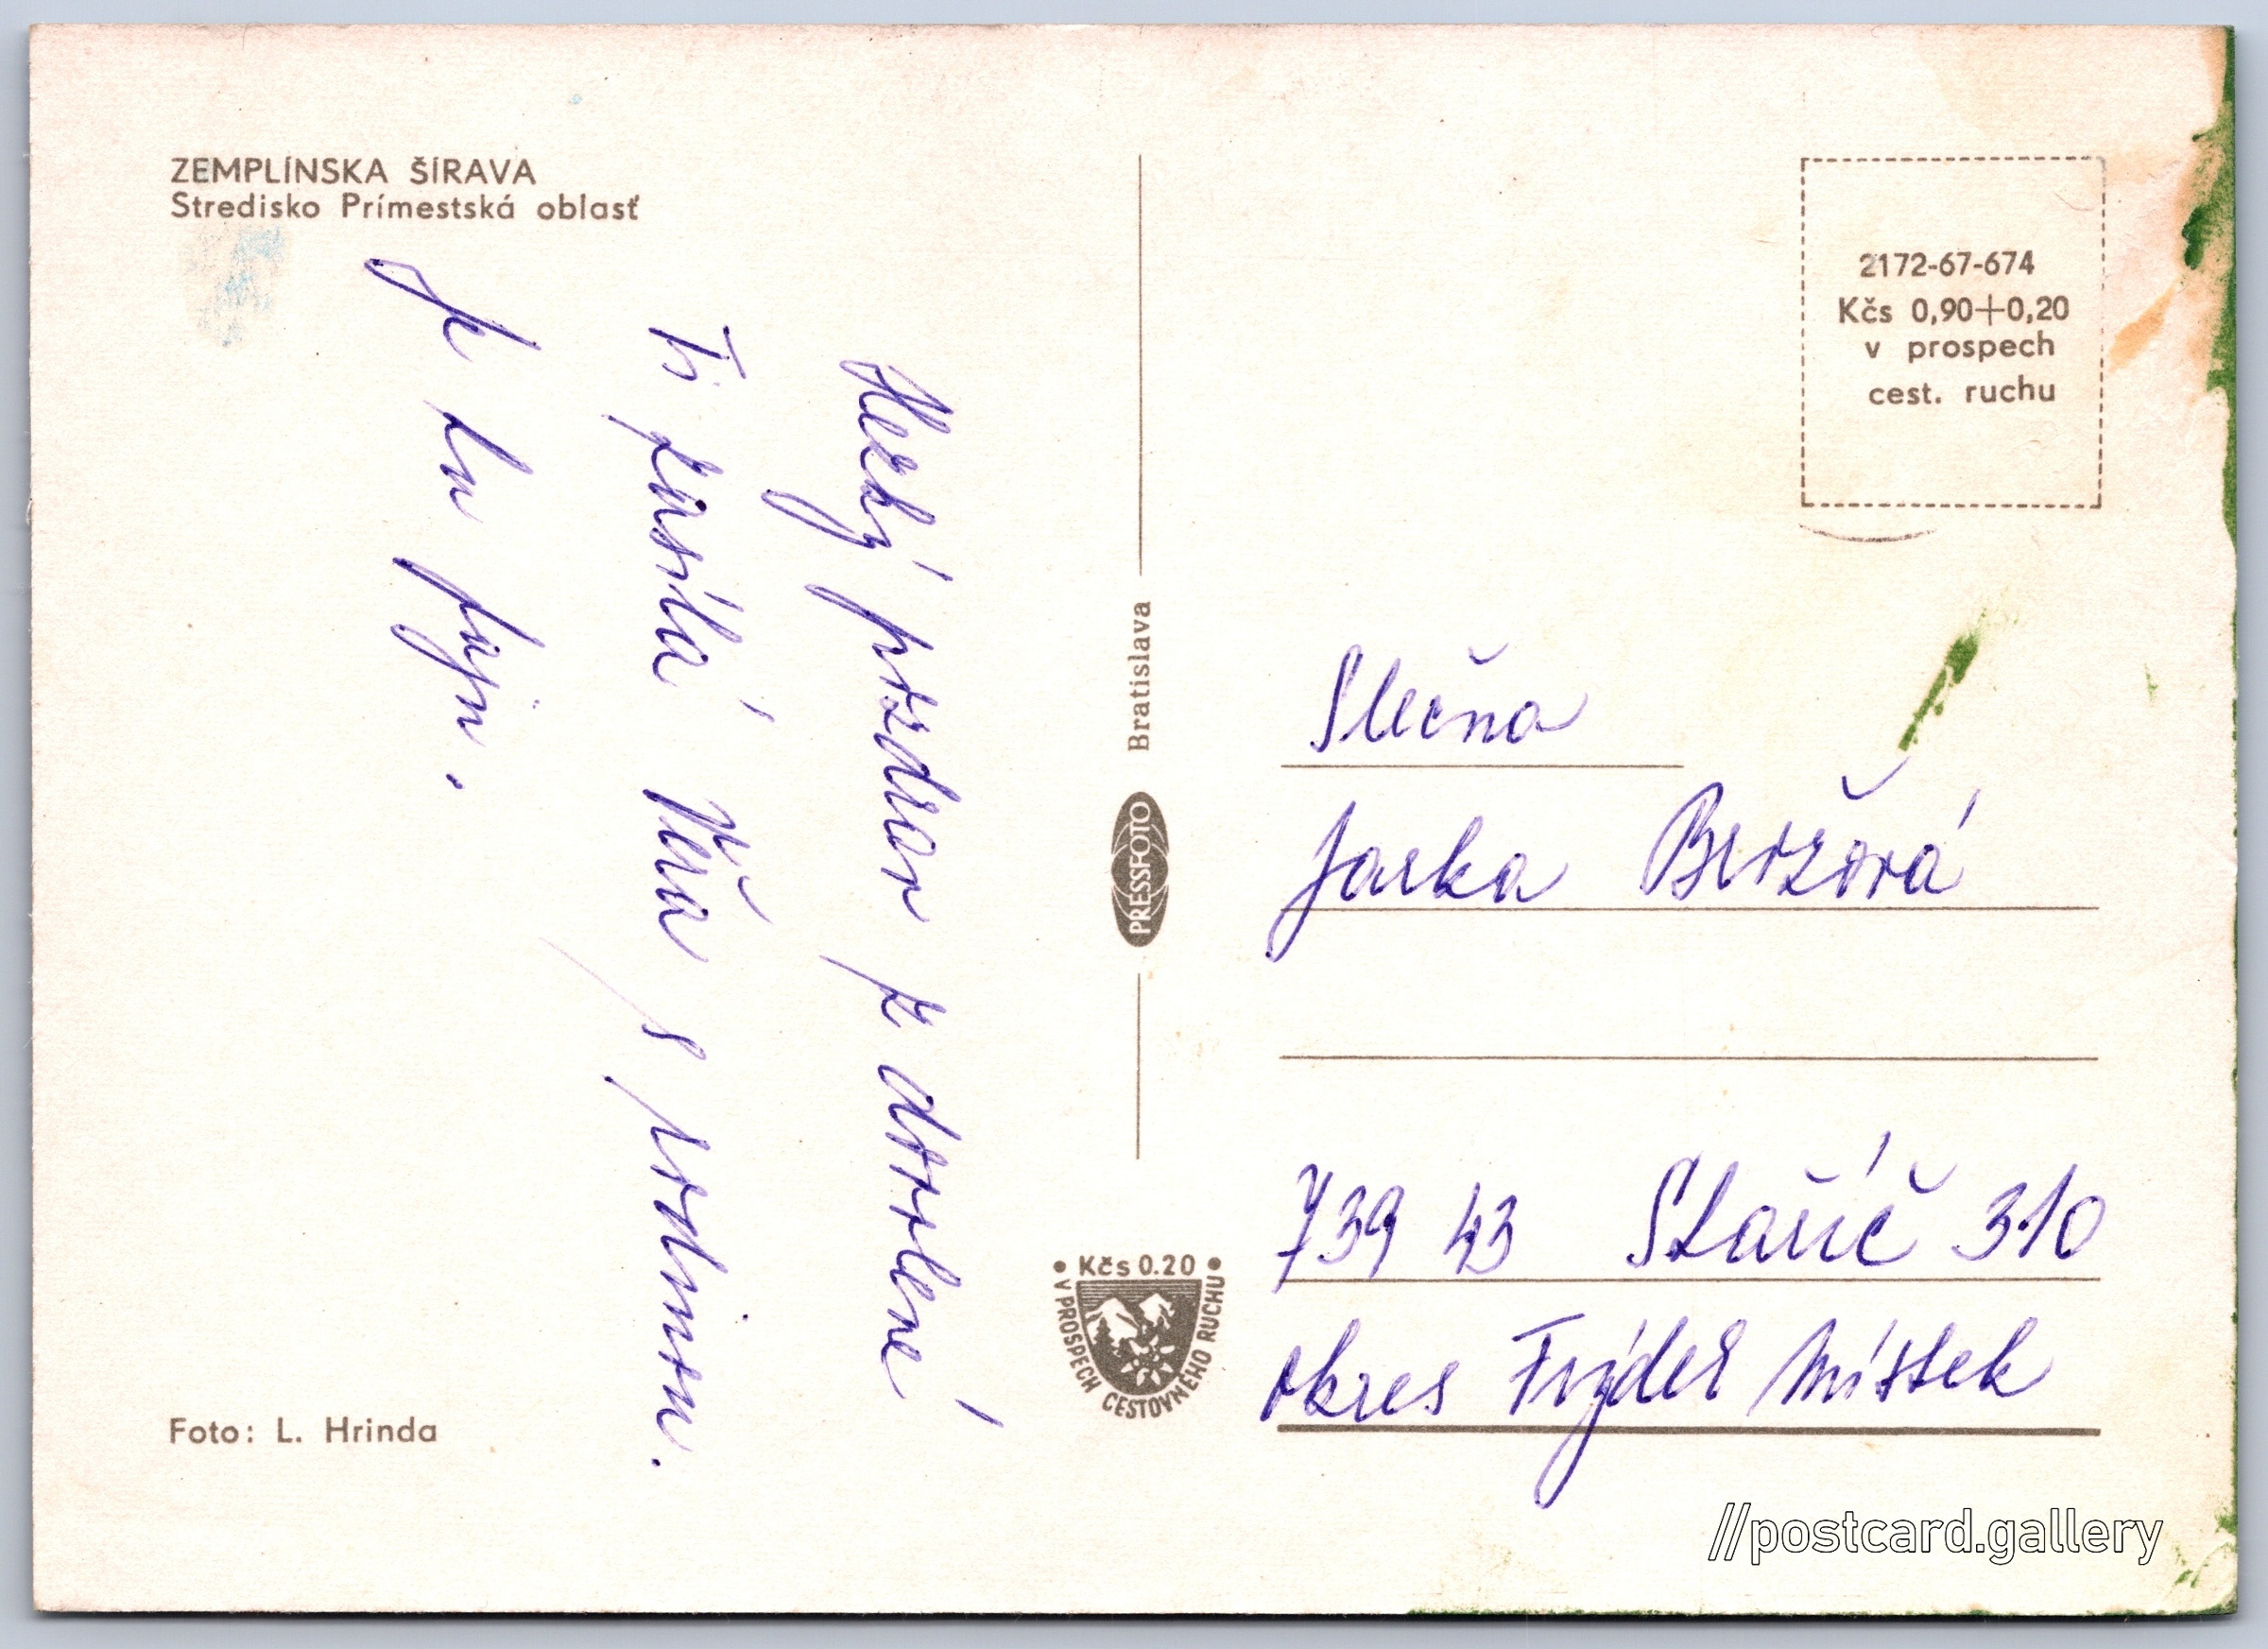 ZEMPLÍNSKA ŠÍRAVA
Stredisko Prímestská oblasť
Hezký pozdrav z dovolené
Ti zasílá Věra s rodinou.
Je tu fajn.
Foto: L. Hrinda
Bratislava
PRESSFOTO
• Kčs 0.20 •
V PROSPECH CESTOVNÉHO RUCHU
2172-67-674
Kčs 0,90+0,20
v prospech
cest. ruchu
Slečna
Jarka Brožová
739 43 Staříč 310
okres Frýdek Místek
//postcard.gallery